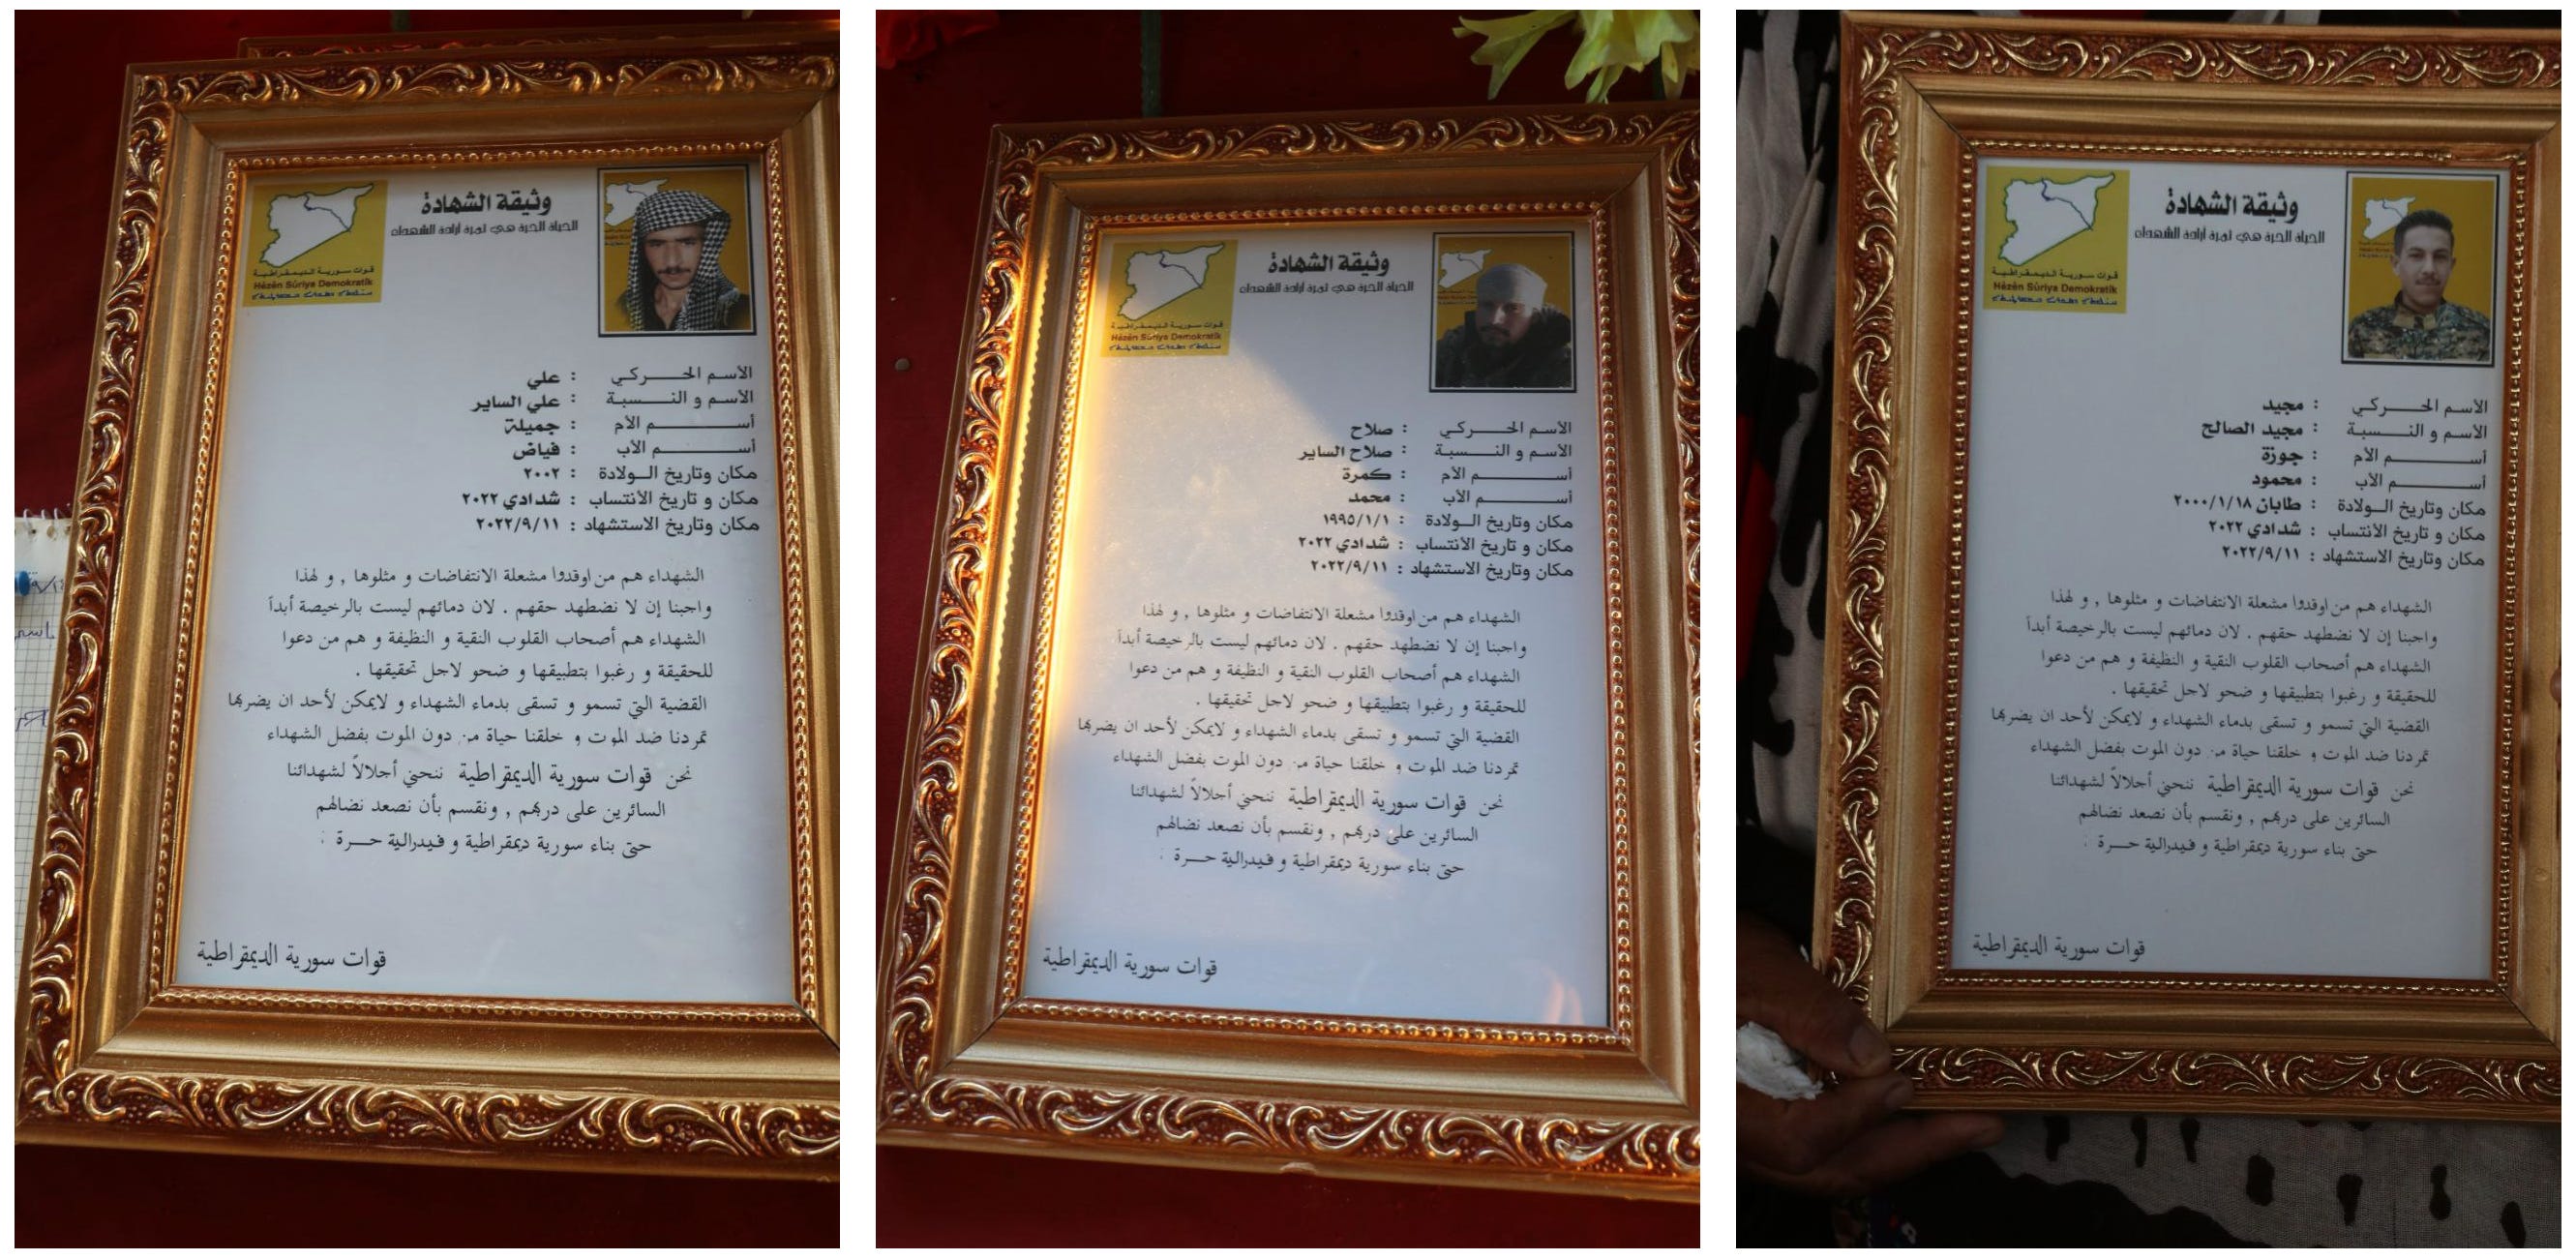 قوات سورية الديمقراطية
Hêzên Sûriya Demokratîk
وثيقة الشهادة
الحياة الحرة هي ثمرة أرادة الشهداء
الاسم الحـــركي : علي
الاسم و النـــسبة : علي الساير
أســـــم الأم : جميلة
أســـــم الأب : فياض
مكان وتاريخ الـولادة : ٢٠٠٢
مكان و تاريخ الأنتساب : شدادي ٢٠٢٢
مكان وتاريخ الاستشهاد : ٢٠٢٢/٩/١١
الشهداء هم من اوقدوا مشعلة الانتفاضات و مثلوها , و لهذا
واجبنا إن لا نضطهد حقهم . لان دمائهم ليست بالرخيصة أبداً
الشهداء هم أصحاب القلوب النقية و النظيفة و هم من دعوا
للحقيقة و رغبوا بتطبيقها و ضحو لاجل تحقيقها .
القضية التي تسمو و تسقى بدماء الشهداء و لايمكن لأحد ان يضربها
تمردنا ضد الموت و خلقنا حياة من دون الموت بفضل الشهداء
نحن قوات سورية الديمقراطية ننحني أجلالاً لشهدائنا
السائرين على دربهم , ونقسم بأن نصعد نضالهم
حتى بناء سورية ديمقراطية و فيدرالية حـــرة .
قوات سورية الديمقراطية
قوات سورية الديمقراطية
Hêzên Sûriya Demokratîk
وثيقة الشهادة
الحياة الحرة هي ثمرة أرادة الشهداء
الاسم الحـــركي : صلاح
الاسم و النـــسبة : صلاح الساير
أســـــم الأم : كمرة
أســـــم الأب : محمد
مكان وتاريخ الـولادة : ١٩٩٥/١/١
مكان و تاريخ الأنتساب : شدادي ٢٠٢٢
مكان وتاريخ الاستشهاد : ٢٠٢٢/٩/١١
الشهداء هم من اوقدوا مشعلة الانتفاضات و مثلوها , و لهذا
واجبنا إن لا نضطهد حقهم . لان دمائهم ليست بالرخيصة أبداً
الشهداء هم أصحاب القلوب النقية و النظيفة و هم من دعوا
للحقيقة و رغبوا بتطبيقها و ضحو لاجل تحقيقها .
القضية التي تسمو و تسقى بدماء الشهداء و لايمكن لأحد ان يضربها
تمردنا ضد الموت و خلقنا حياة من دون الموت بفضل الشهداء
نحن قوات سورية الديمقراطية ننحني أجلالاً لشهدائنا
السائرين على دربهم , ونقسم بأن نصعد نضالهم
حتى بناء سورية ديمقراطية و فيدرالية حـــرة .
قوات سورية الديمقراطية
قوات سورية الديمقراطية
Hêzên Sûriya Demokratîk
وثيقة الشهادة
الحياة الحرة هي ثمرة أرادة الشهداء
الاسم الحـــركي : مجيد
الاسم و النـــسبة : مجيد الصالح
أســـــم الأم : جوزة
أســـــم الأب : محمود
مكان وتاريخ الـولادة : طابان ٢٠٠٠/١/١٨
مكان و تاريخ الأنتساب : شدادي ٢٠٢٢
مكان وتاريخ الاستشهاد : ٢٠٢٢/٩/١١
الشهداء هم من اوقدوا مشعلة الانتفاضات و مثلوها , و لهذا
واجبنا إن لا نضطهد حقهم . لان دمائهم ليست بالرخيصة أبداً
الشهداء هم أصحاب القلوب النقية و النظيفة و هم من دعوا
للحقيقة و رغبوا بتطبيقها و ضحو لاجل تحقيقها .
القضية التي تسمو و تسقى بدماء الشهداء و لايمكن لأحد ان يضربها
تمردنا ضد الموت و خلقنا حياة من دون الموت بفضل الشهداء
نحن قوات سورية الديمقراطية ننحني أجلالاً لشهدائنا
السائرين على دربهم , ونقسم بأن نصعد نضالهم
حتى بناء سورية ديمقراطية و فيدرالية حـــرة .
قوات سورية الديمقراطية